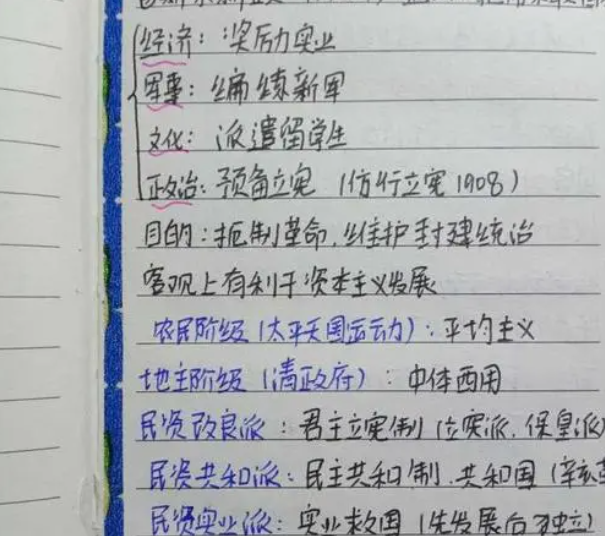 经济：奖励实业
军事：编练新军
文化：派遣留学生
政治：预备立宪（仿行立宪1908）
目的：扼制革命，维护封建统治
客观上有利于资本主义发展
农民阶级（太平天国运动）：平均主义
地主阶级（清政府）：中体西用
民资改良派：君主立宪制（立宪派，保皇派）
民资共和派：民主共和制，共和国（辛亥
民资实业派：实业救国（先发展后独立）